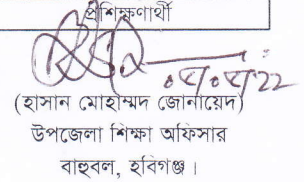 প্রশিক্ষণার্থী
(হাসান মোহাম্মদ জোনায়েদ)
উপজেলা শিক্ষা অফিসার
বাহুবল, হবিগঞ্জ।